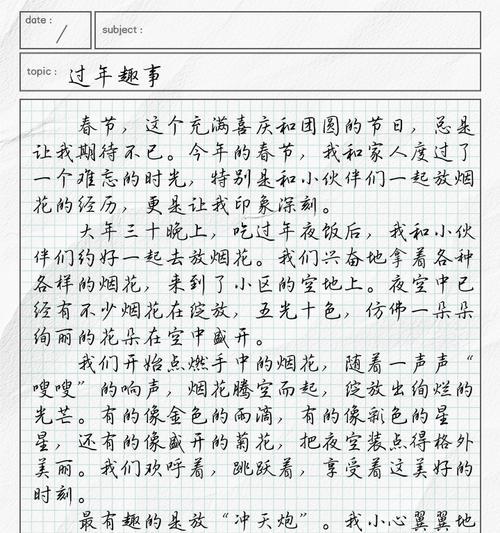 date :
subject :
topic : 过年趣事
春节，这个充满喜庆和团圆的节日，总是
让我期待不已。今年的春节，我和家人度过了
一个难忘的时光，特别是和小伙伴们一起放烟
花的经历，更是让我印象深刻。
大年三十晚上，吃过年夜饭后，我和小伙
伴们约好一起去放烟花。我们兴奋地拿着各种
各样的烟花，来到了小区的空地上。夜空中已
经有不少烟花在绽放，五光十色，仿佛一朵朵
绚丽的花朵在空中盛开。
我们开始点燃手中的烟花，随着一声声“
嗖嗖”的响声，烟花腾空而起，绽放出绚烂的
光芒。有的像金色的雨滴，有的像彩色的星
星，还有的像盛开的菊花，把夜空装点得格外
美丽。我们欢呼着，跳跃着，享受着这美好的
时刻。
最有趣的是放“冲天炮”。我小心翼翼地